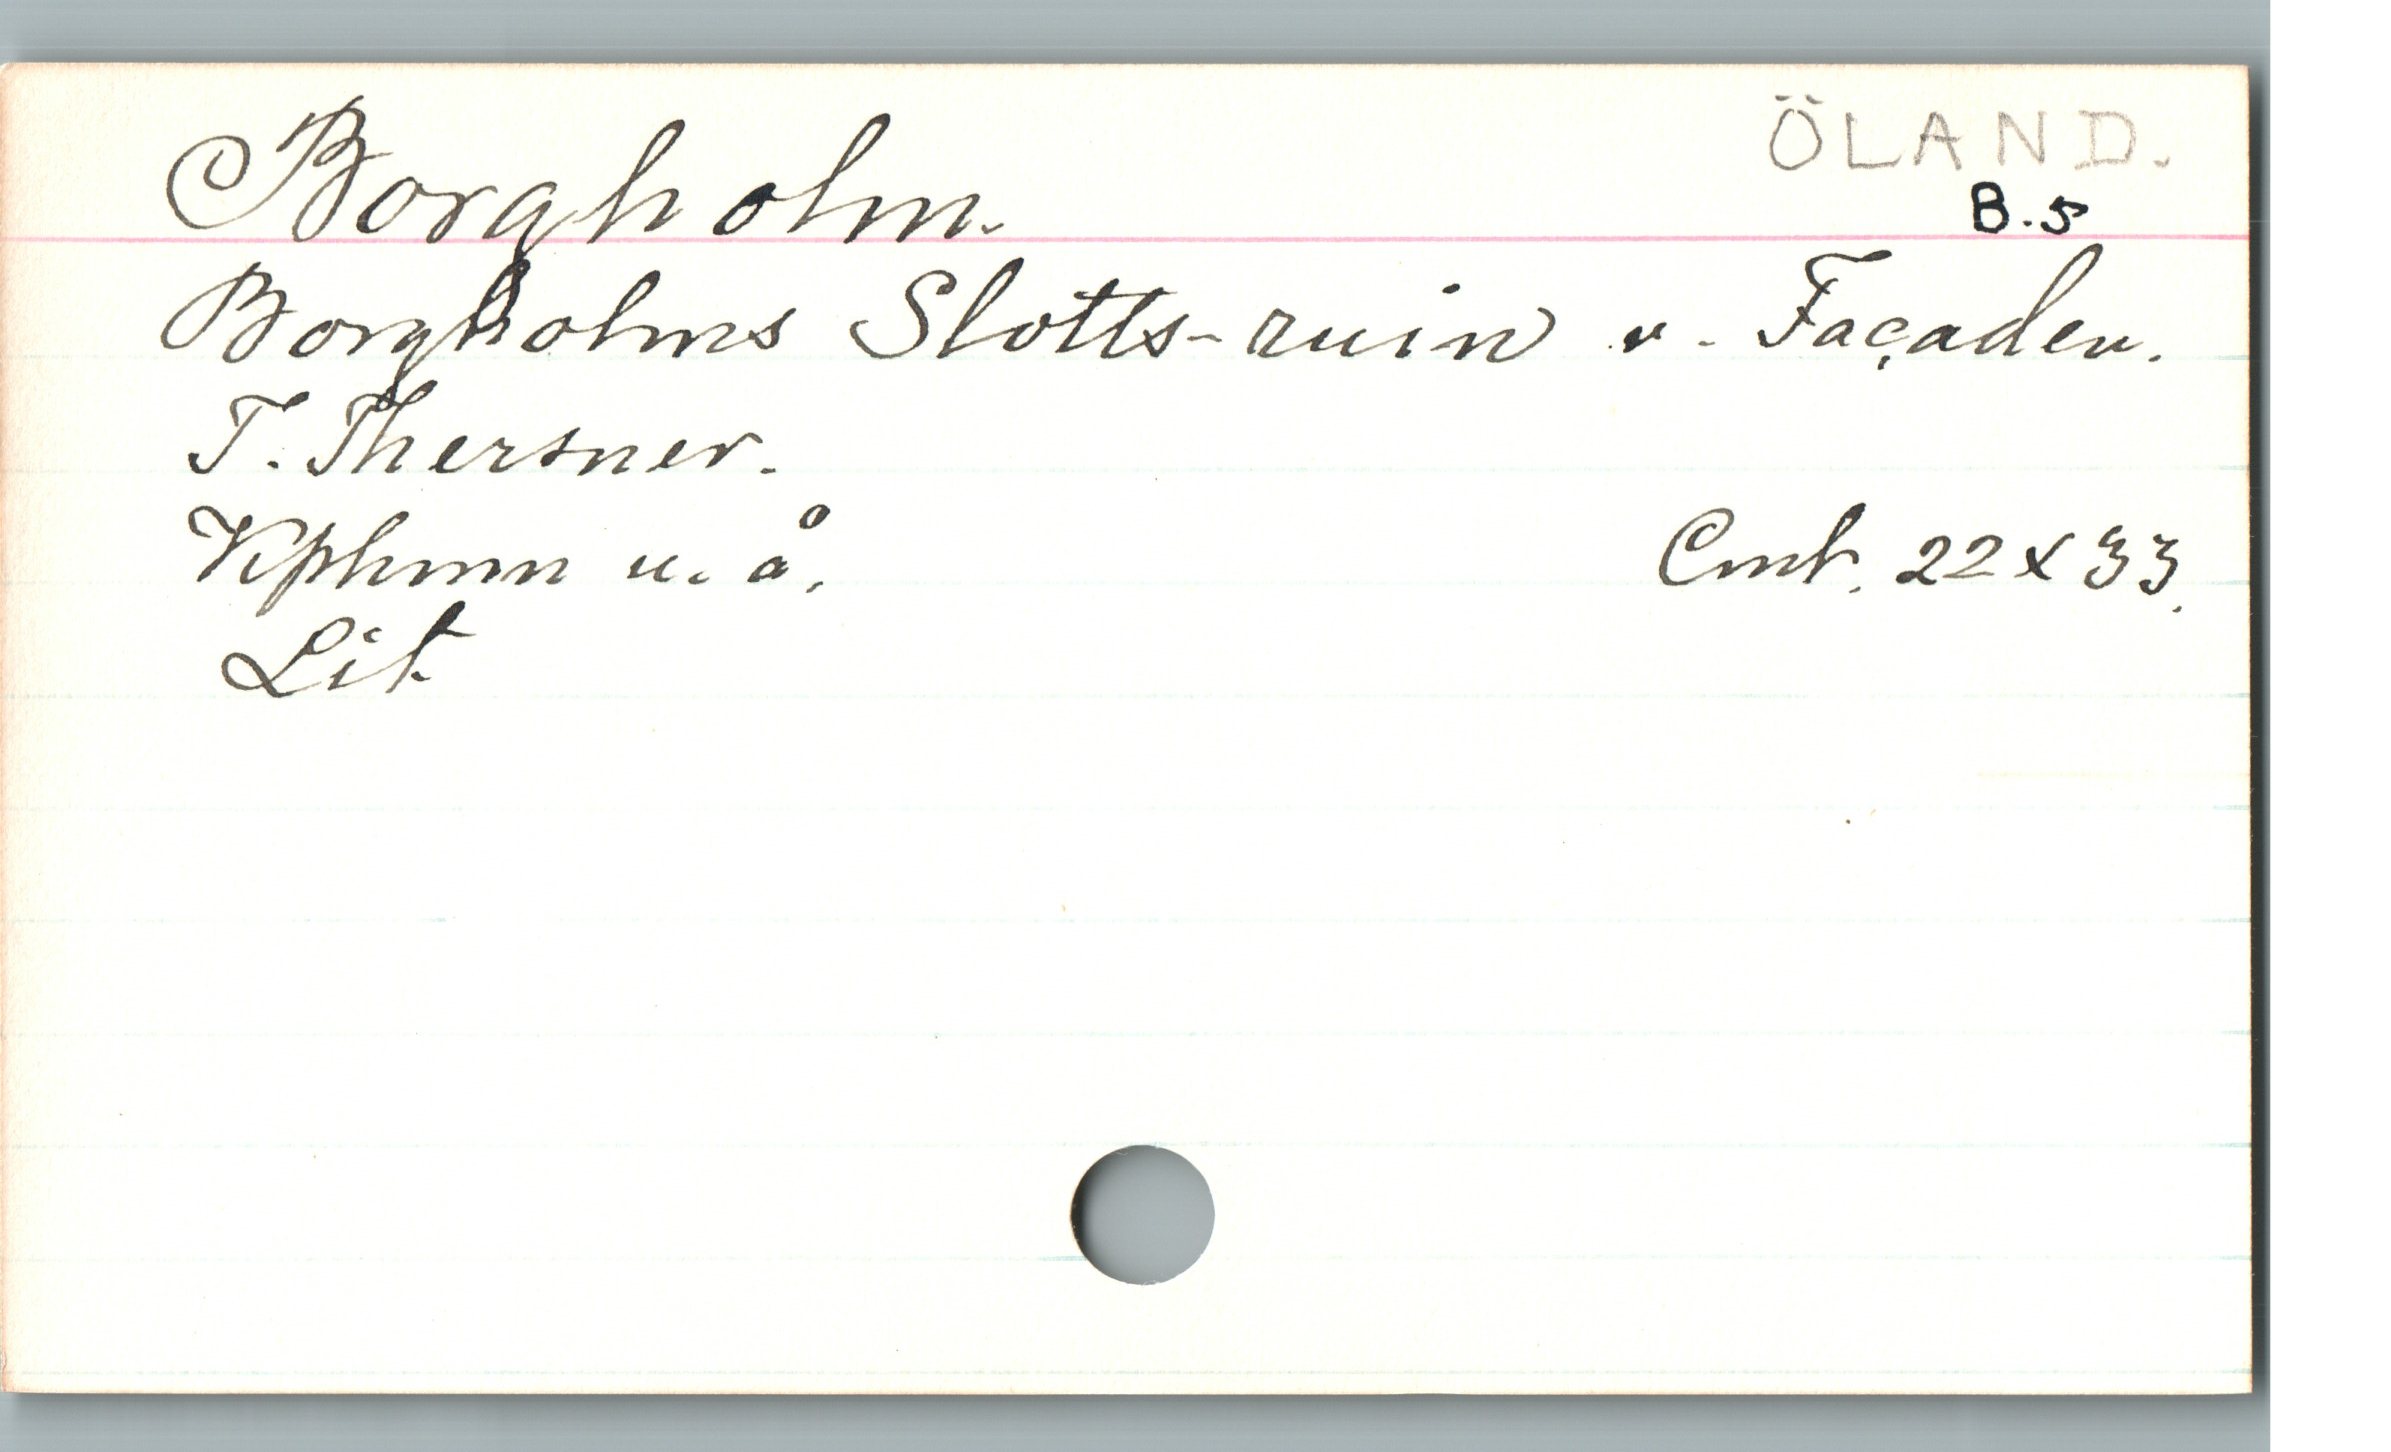 ÖLAND.
Borgholm.
B.5
Borgholms Slotts-ruin v. Façaden.
T. Thersner.
Kphmn u. å.
Cmt. 22 x 33.
Lit.